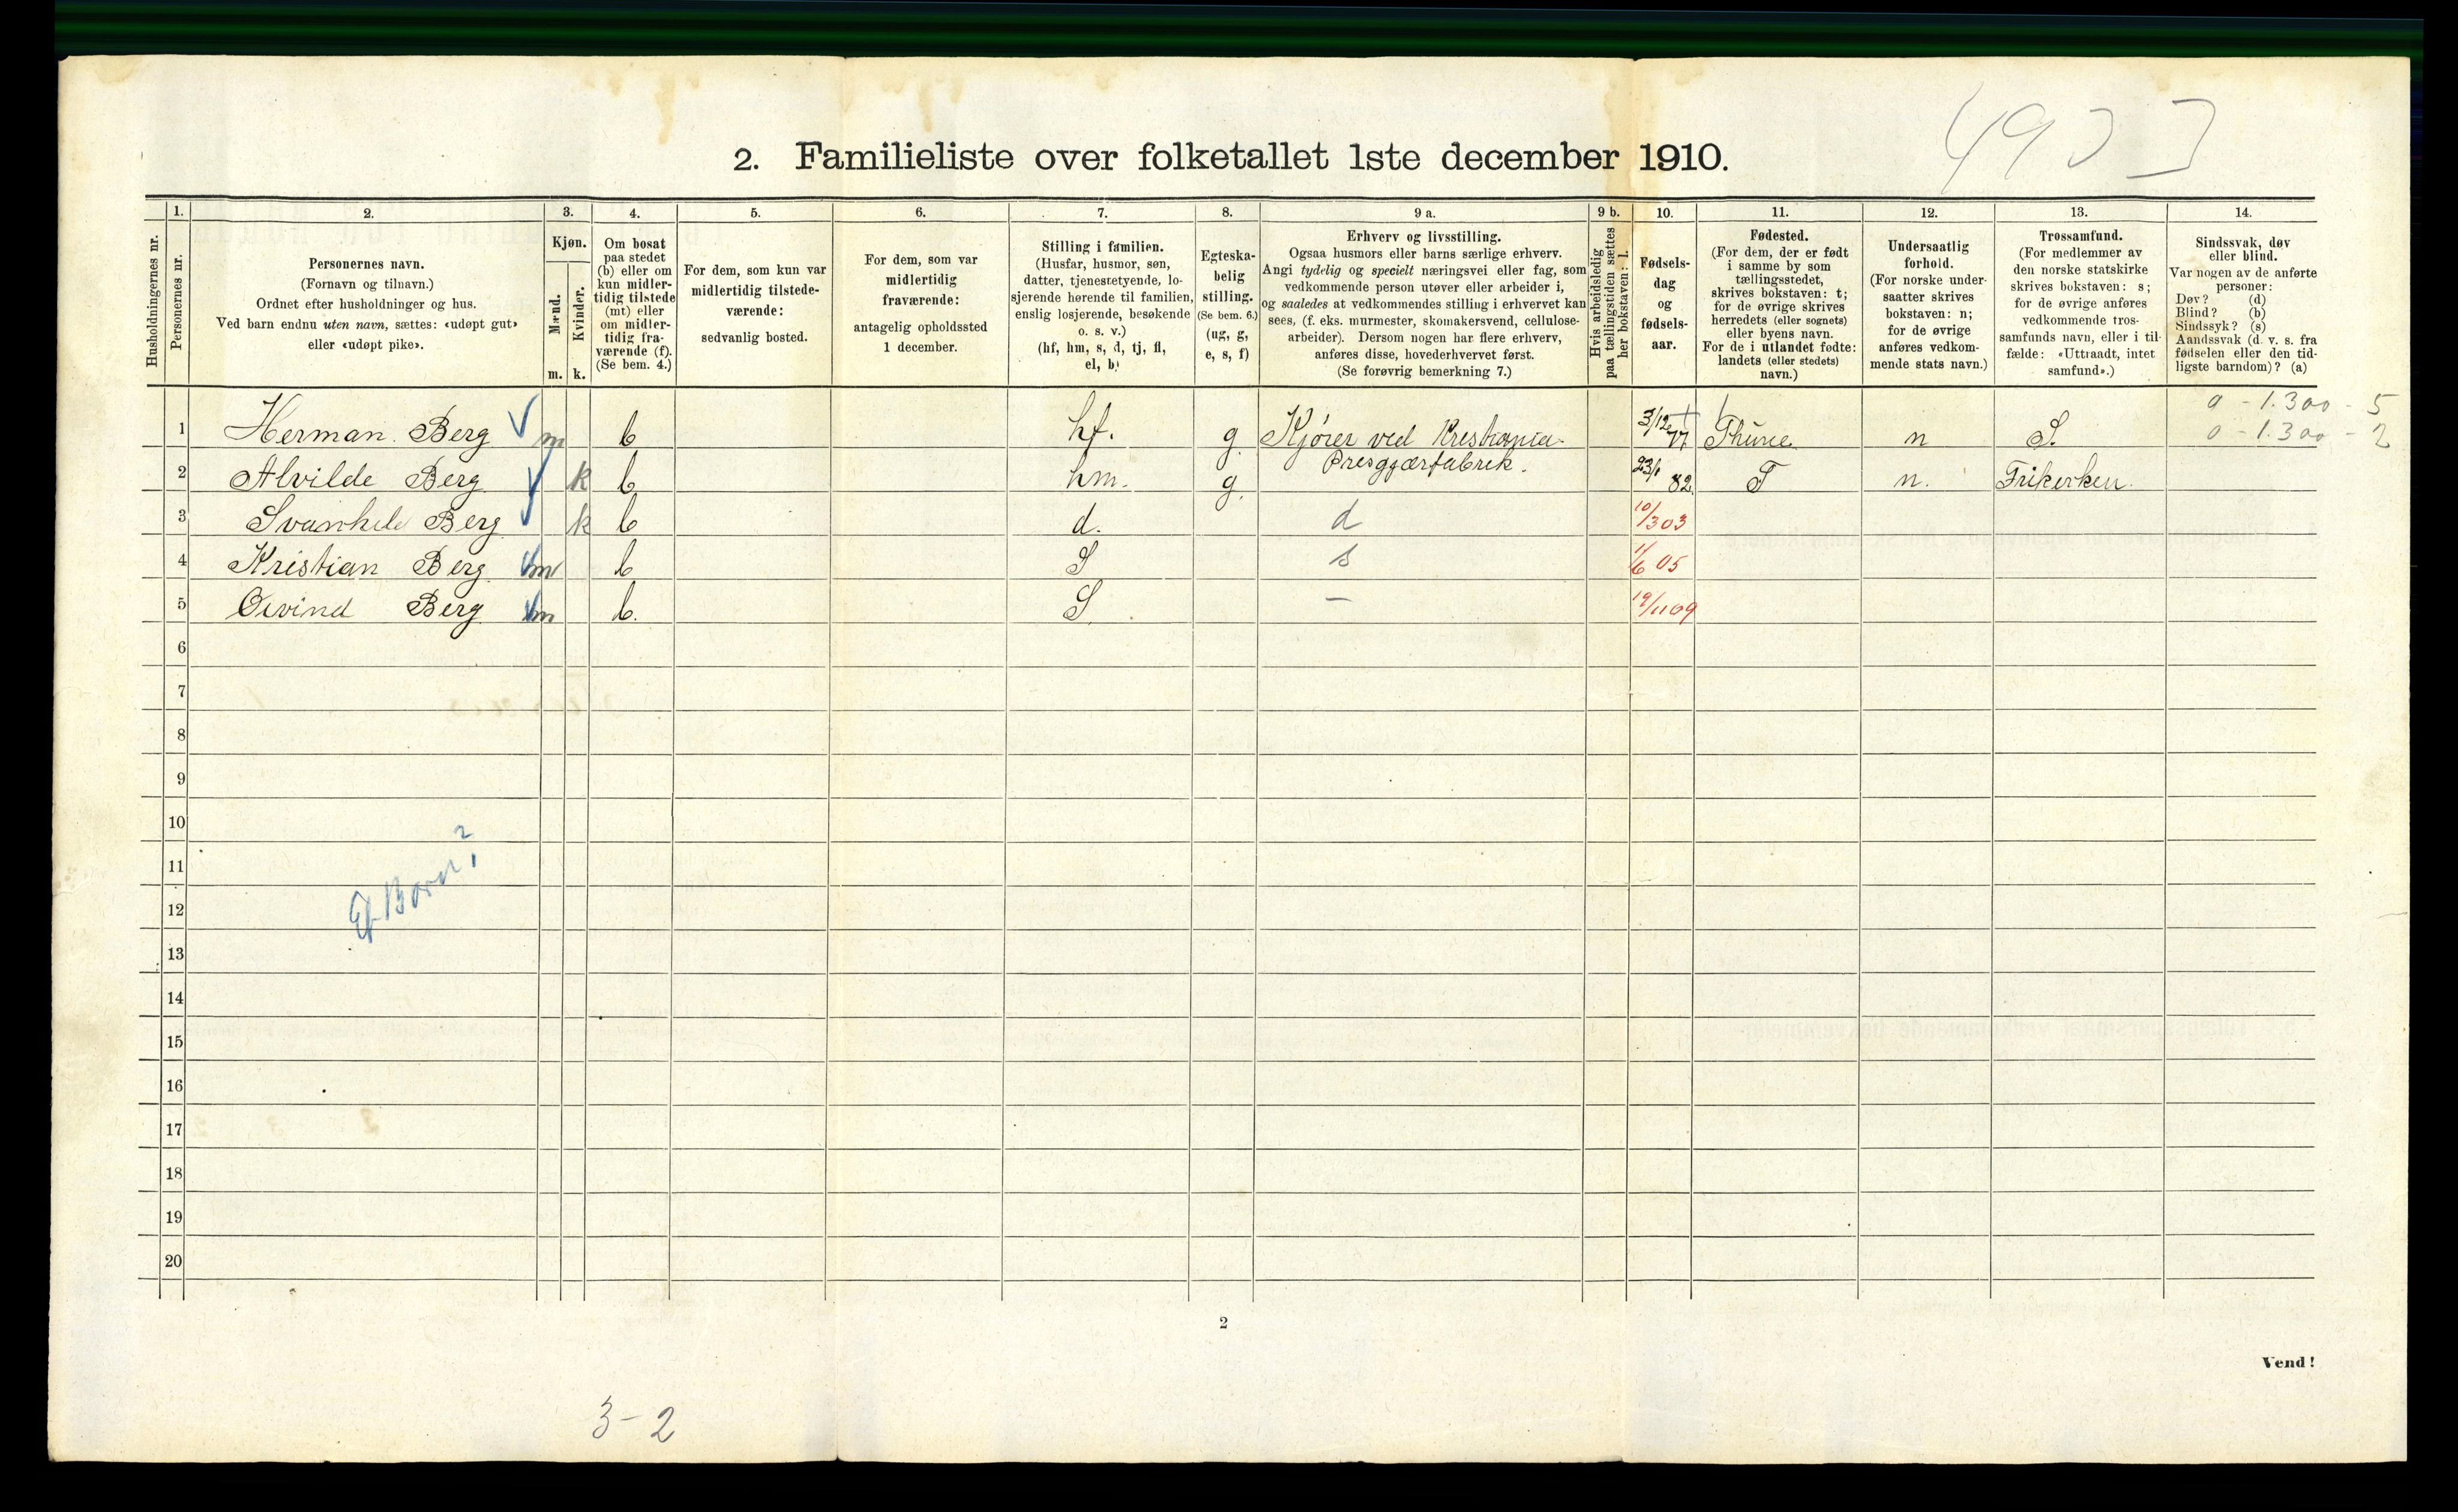 4933
2. Familieliste over folketallet 1ste december 1910.
1. 2. 3. 4. 5. 6. 7. 8. 9 a. 9 b. 10. 11. 12. 13. 14.
Husholdningernes nr.
Personernes nr.
Personernes navn.
(Fornavn og tilnavn.)
Ordnet efter husholdninger og hus.
Ved barn endnu uten navn, sættes: «udøpt gut»
eller «udøpt pike».
Kjøn.
Mænd.
m.
Kvinder.
k.
Om bosat
paa stedet
(b) eller om
kun midler-
tidig tilstede
(mt) eller
om midler-
tidig fra-
værende (f).
(Se bem. 4.)
For dem, som kun var
midlertidig tilstede-
værende:
sedvanlig bosted.
For dem, som var
midlertidig
fraværende:
antagelig opholdssted
1 december.
Stilling i familien.
(Husfar, husmor, søn,
datter, tjenestetyende, lo-
sjerende hørende til familien,
enslig losjerende, besøkende
o. s. v.)
(hf, hm, s, d, tj, fl,
el, b)
Egteska-
belig
stilling.
(Se bem. 6.)
(ug, g,
e, s, f)
Erhverv og livsstilling.
Ogsaa husmors eller barns særlige erhverv.
Angi tydelig og specielt næringsvei eller fag, som
vedkommende person utøver eller arbeider i,
og saaledes at vedkommendes stilling i erhvervet kan
sees, (f. eks. murmester, skomakersvend, cellulose-
arbeider). Dersom nogen har flere erhverv,
anføres disse, hovederhvervet først.
(Se forøvrig bemerkning 7.)
Hvis arbeidsledig
paa tællingstiden sættes
her bokstaven: l.
Fødsels-
dag
og
fødsels-
aar.
Fødested.
(For dem, der er født
i samme by som
tællingsstedet,
skrives bokstaven: t;
for de øvrige skrives
herredets (eller sognets)
eller byens navn.
For de i utlandet fødte:
landets (eller stedets)
navn.)
Undersaatlig
forhold.
(For norske under-
saatter skrives
bokstaven: n;
for de øvrige
anføres vedkom-
mende stats navn.)
Trossamfund.
(For medlemmer av
den norske statskirke
skrives bokstaven: s;
for de øvrige anføres
vedkommende tros-
samfunds navn, eller i til-
fælde: «Uttraadt, intet
samfund».)
Sindssvak, døv
eller blind.
Var nogen av de anførte
personer:
Døv? (d)
Blind? (b)
Sindssyk? (s)
Aandssvak (d. v. s. fra
fødselen eller den tid-
ligste barndom)? (a)
0 - 1.300 - 5
1 Herman Berg m b hf. g Kjører ved Kristiania 3/12 77 Thune n S. 0 - 1.300 - 2
Presgjærfabrik.
2 Alvilde Berg k b hm. g. 23/1 82 T n. Frikerken.
3 Svanhild Berg k b d. d 10/3 03
4 Kristian Berg m b S s 1/6 05
5 Øivind Berg m b. S. — 19/11 09
6
7
8
9
10
11
Børn?
12
13
14
15
16
17
18
19
20
2
Vend!
3-2